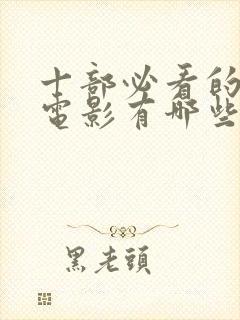 十部必看的
电影有哪些
黑老頭